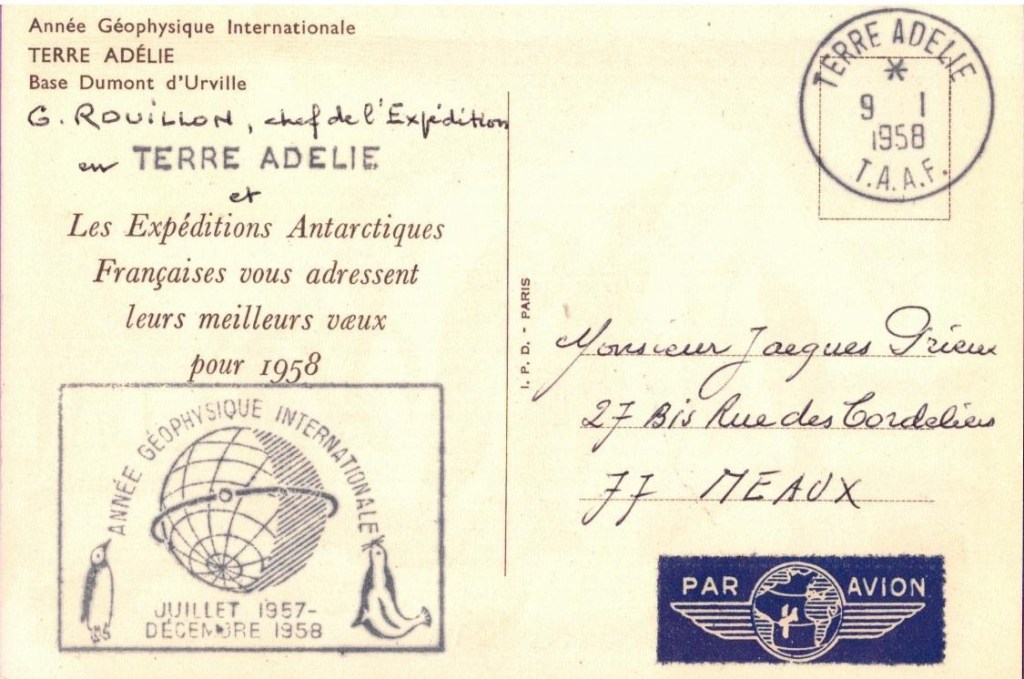 Année Géophysique Internationale
TERRE ADÉLIE
Base Dumont d'Urville
G. ROUILLON, chef de l'Expédition
en TERRE ADELIE
et
Les Expéditions Antarctiques
Françaises vous adressent
leurs meilleurs vœux
pour 1958
ANNÉE GÉOPHYSIQUE INTERNATIONALE
JUILLET 1957-
DÉCEMBRE 1958
I. P. D. - PARIS
TERRE ADELIE
*
9 1
1958
T.A.A.F.
Monsieur Jacques Prieur
27 Bis Rue des Cordeliers
77 MEAUX
PAR AVION